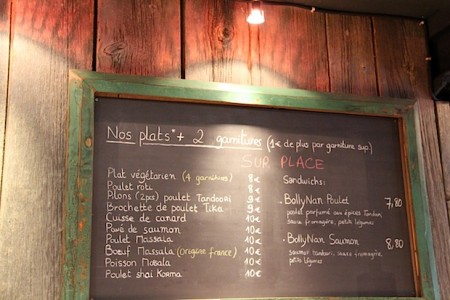 Nos plats* + 2 garnitures (1€ de plus par garniture sup.)
SUR PLACE
Plat végétarien (4 garnitures) 8€
Poulet rôti 8€
Pilons (2pcs) poulet Tandoori 9€
Brochette de poulet Tika 9€
Cuisse de canard 10€
Pavé de saumon 10€
Poulet Massala 10€
Boeuf Massala (Origine france) 10€
Poisson Masala 10€
Poulet shai Korma 10€
Sandwichs:
- BollyNan Poulet 7,80
poulet parfumé aux épices Tandoori,
sauce fromagère, petits légumes
- BollyNan Saumon 8,80
saumon tandoori, sauce fromagère,
petits légumes